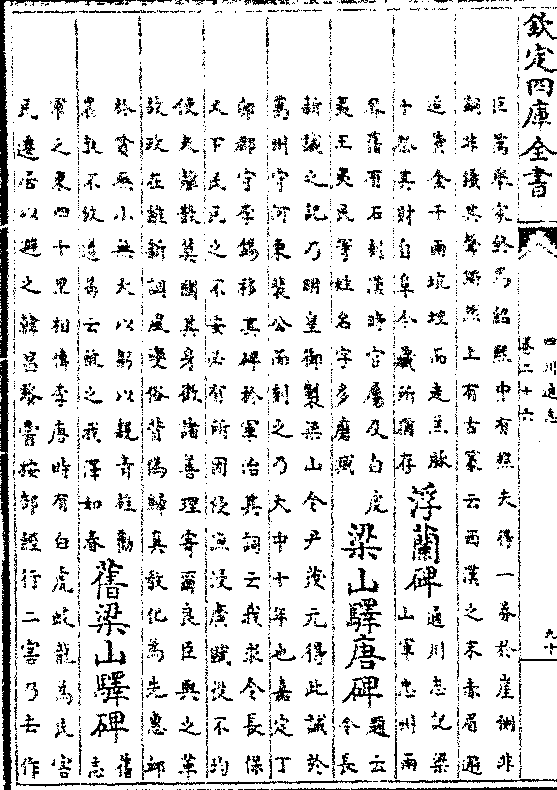 欽定四庫全書
四川通志
卷二十六
九十
巨萬舉家終焉紹熙中有樵夫得一券於崖側非
銅非鐵其聲鏘然上有古篆云西漢之末赤眉避
近賫金千兩坑埋而走無脉
千忽其財自阜今藏所猶存
浮蘭碑
通川志記梁
山軍忠州兩
界舊有石刻漢時官屬及白虎
夷王夷民等姓名字多磨滅
梁山驛唐碑
題云
令長
新誡之記乃明皇御製梁山令尹茂元得此誡於
萬州守河東裴公而刻之乃大中十年也嘉定丁
卯郡守李錫移其碑於軍治其詞云我求令長保
乂下民民之不安必有所因侵漁浸廣賦役不均
使夫離散莫國其身徵諸善理寄爾良臣與之革
故政在維新調風變俗背偽歸真教化為先惠卹
於貧無小無大以躬以親青旌勸
農孰不欽遵焉云敬之我澤如春
舊梁山驛碑
舊
志
軍之東四十里相傳李唐時有白虎蛟龍為民害
民遷居以避之韓昌黎嘗按部經行二害乃去作